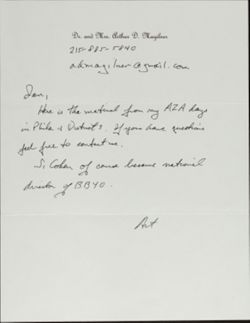 Dr. and Mrs. Arthur D. Magilner
215-885-5840
adimagilner@gmail.com
Dan,
Here is the material from my AZA days
in Phila & District 3. If you have questions
feel free to contact me.
Si Cohen of course became national
director of BBYO.
Art